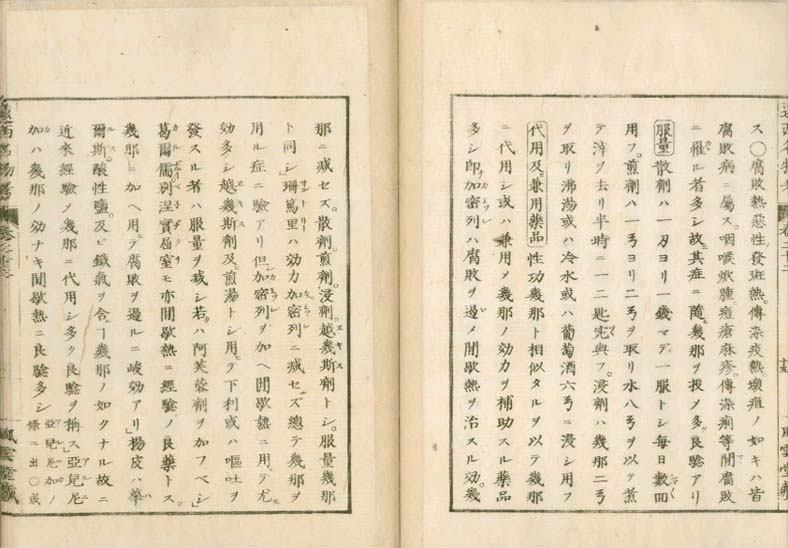 ス○腐敗熱惡性發斑熱。傳染疫熱壞疽ノ如キハ皆
腐敗病ニ屬ス。咽喉焮腫。痘瘡麻疹。傳染痢等間腐敗
ニ罹ル者多シ故ニ其症ニ隨テ幾那ヲ投メ多ク良驗アリ
服量 散劑ハ一刀ヨリ一錢マデ一服トシ每日數回
用フ。煎劑ハ一ヨリ二ヲ取リ水八ヲ以テ煮
テ滓ヲ去リ半時ニ一二匙宛與フ。浸劑ハ幾那二
ヲ取リ沸湯或ハ冷水或ハ葡萄酒六ニ浸シ用フ
代用及兼用藥品 性功幾那ト相似タルヲ以テ幾那
ニ代用シ或ハ兼用メ幾那ノ効力ヲ補助スル藥品
多シ卽加密列ハ腐敗ヲ遏メ間歇熱ヲ治スル効。幾
那ニ減セズ。散劑。煎劑。浸劑。越幾斯劑トシ。服量幾那
ト同シ」珊篤里ハ効力加密列ニ減セズ總テ幾那ヲ
用ル症ニ驗アリ但加密列ヲ加ヘ間歇熱ニ用テ尤
効多シ越幾斯劑及煎湯トシ用テ下利或ハ嘔吐ヲ
發スル者ハ服量ヲ減シ若クハ阿芙蓉劑ヲ加フベシ」
葛爾儒別涅實屈室モ亦間歇熱ニ經驗ノ良藥トス。
幾那ニ加ヘ用テ腐敗ヲ遏ルニ峻効アリ」楊皮ハ華
爾斯。酸性鹽。及ヒ鐵氣ヲ含ム幾那ノ如クナル故ニ
近來經驗メ幾那ニ代用シ多ク良驗ヲ稱ス亞兒尼
加ハ幾那ノ効ナキ間歇熱ニ良驗多シ 亞兒尼加ノ
條ニ出○或